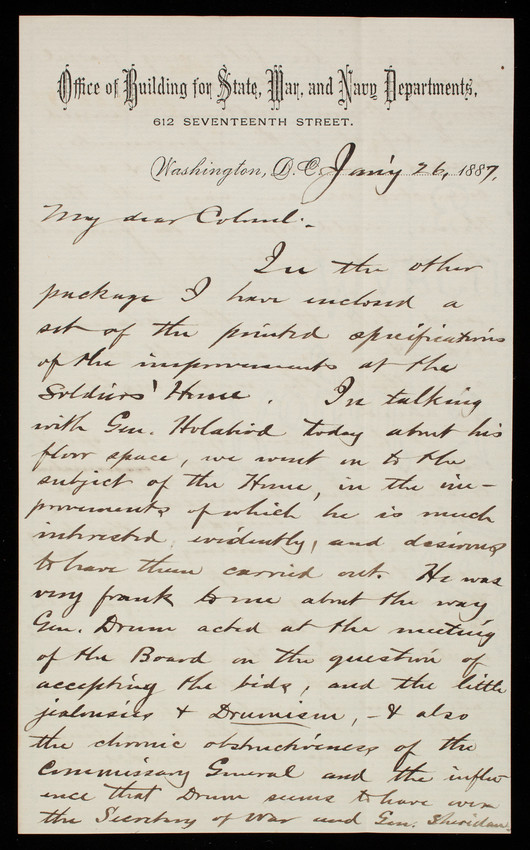 Office of Building for State, War, and Navy Departments,
612 SEVENTEENTH STREET.
Washington, D.C. Jan'y 26, 1887.
My dear Colonel:-
In the other
package I have inclosed a
set of the printed specifications
of the improvements at the
Soldiers' Home. In talking
with Gen. Holabird today about his
floor space, we went on to the
subject of the Home, in the im-
provements of which he is much
interested, evidently, and desirous
to have them carried out. He was
very frank to me about the way
Gen. Drum acted at the meeting
of the Board on the question of
accepting the bids, and the little
jealousies & Drumism, - & also
the chronic obstructiveness of the
Commissary General and the influ-
ence that Drum seems to have over
the Secretary of War and Gen. Sheridan.